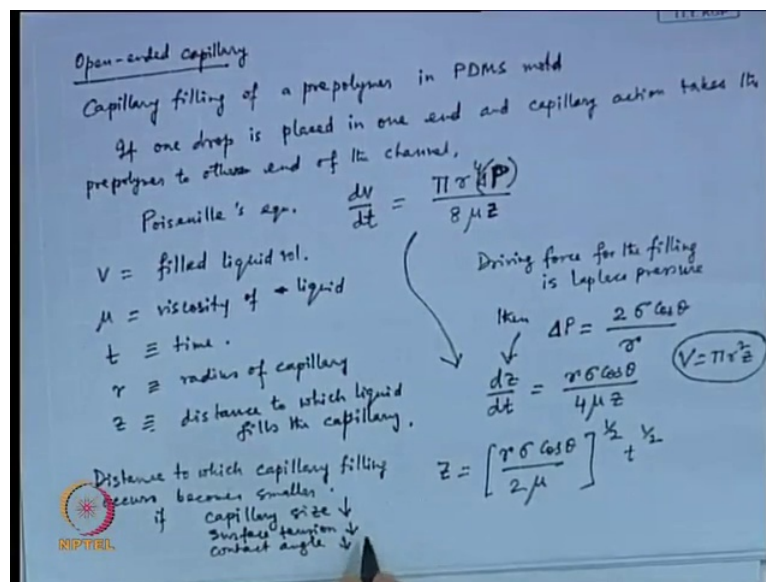 Open-ended capillary
Capillary filling of a prepolymer in PDMS mold
If one drop is placed in one end and capillary action takes the
prepolymer to other end of the channel.
Poiseuille's equn. dv/dt = πr⁴(P)/8μz
V = filled liquid vol.
μ = viscosity of liquid
t ≡ time.
r ≡ radius of capillary
z ≡ distance to which liquid
fills the capillary.
Driving force for the filling
is Laplace pressure
then ΔP = 2σcosθ/r
V = πr²z
dz/dt = rσcosθ/4μz
z = [rσcosθ/2μ]^1/2 t^1/2
Distance to which capillary filling
occurs becomes smaller.
if capillary size ↓
surface tension ↓
contact angle ↓
NPTEL